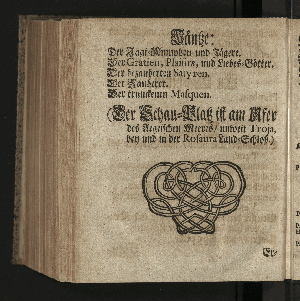 Täntze.
Der Jagt-Nymphen und Jägere.
Der Gratien, Plaisirs, und Liebes-Götter.
Der bezauberten Satyren.
Der Zauberer.
Der trunckenen Masquen.
(Der Schau-Platz ist am Ufer
des Aegeischen Meeres/ unweit Troja,
bey und in der Rosaura Land-Schloß.)
Er-